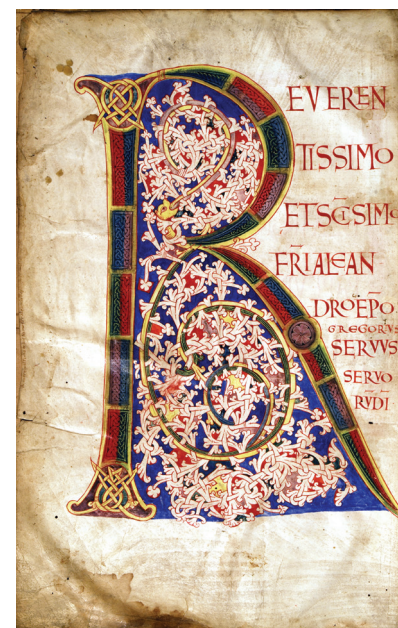 REVEREN
TISSIMO
ETSC̅ISIMO
FR̅IALEAN
DROEPO̅
GREGORIVS
SERVVS
SERVO
RV̅DI̅